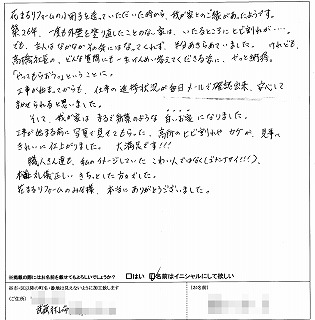 花まるリフォームの小冊子を送っていただいた時から、我が家とのご縁があったようです。
築26年、一度も外壁を塗り直したことのない家は、いたるところにヒビ割れが…。
でも、主人はなかなかその気にはなってくれず、半分あきらめていました。けれども、
高橋社長の、どんな質問にも一生けんめい答えてくださる姿に、やっと納得。
「やってもらおう」ということに。
工事が始まってからも、仕事の進捗状況が毎日メールで確認出来、安心して
まかせられると思いました。
そして、我が家は、まるで新築のような白いお家になりました。
工事が始まる前に写真で見てもらった、高所のヒビ割れやカケが、見事に
きれいに仕上がりました。大満足です!!!
職人さん達も、私のイメージしていた こわい人ではなく(ゴメンナサイ!!!)、
礼儀正しい きちっとした方々でした。
花まるリフォームのみな様、本当にありがとうございました。
※掲載の際にはお名前を載せてもよろしいでしょうか?
□はい
□名前はイニシャルにして欲しい
(ご住所)
(お名前)